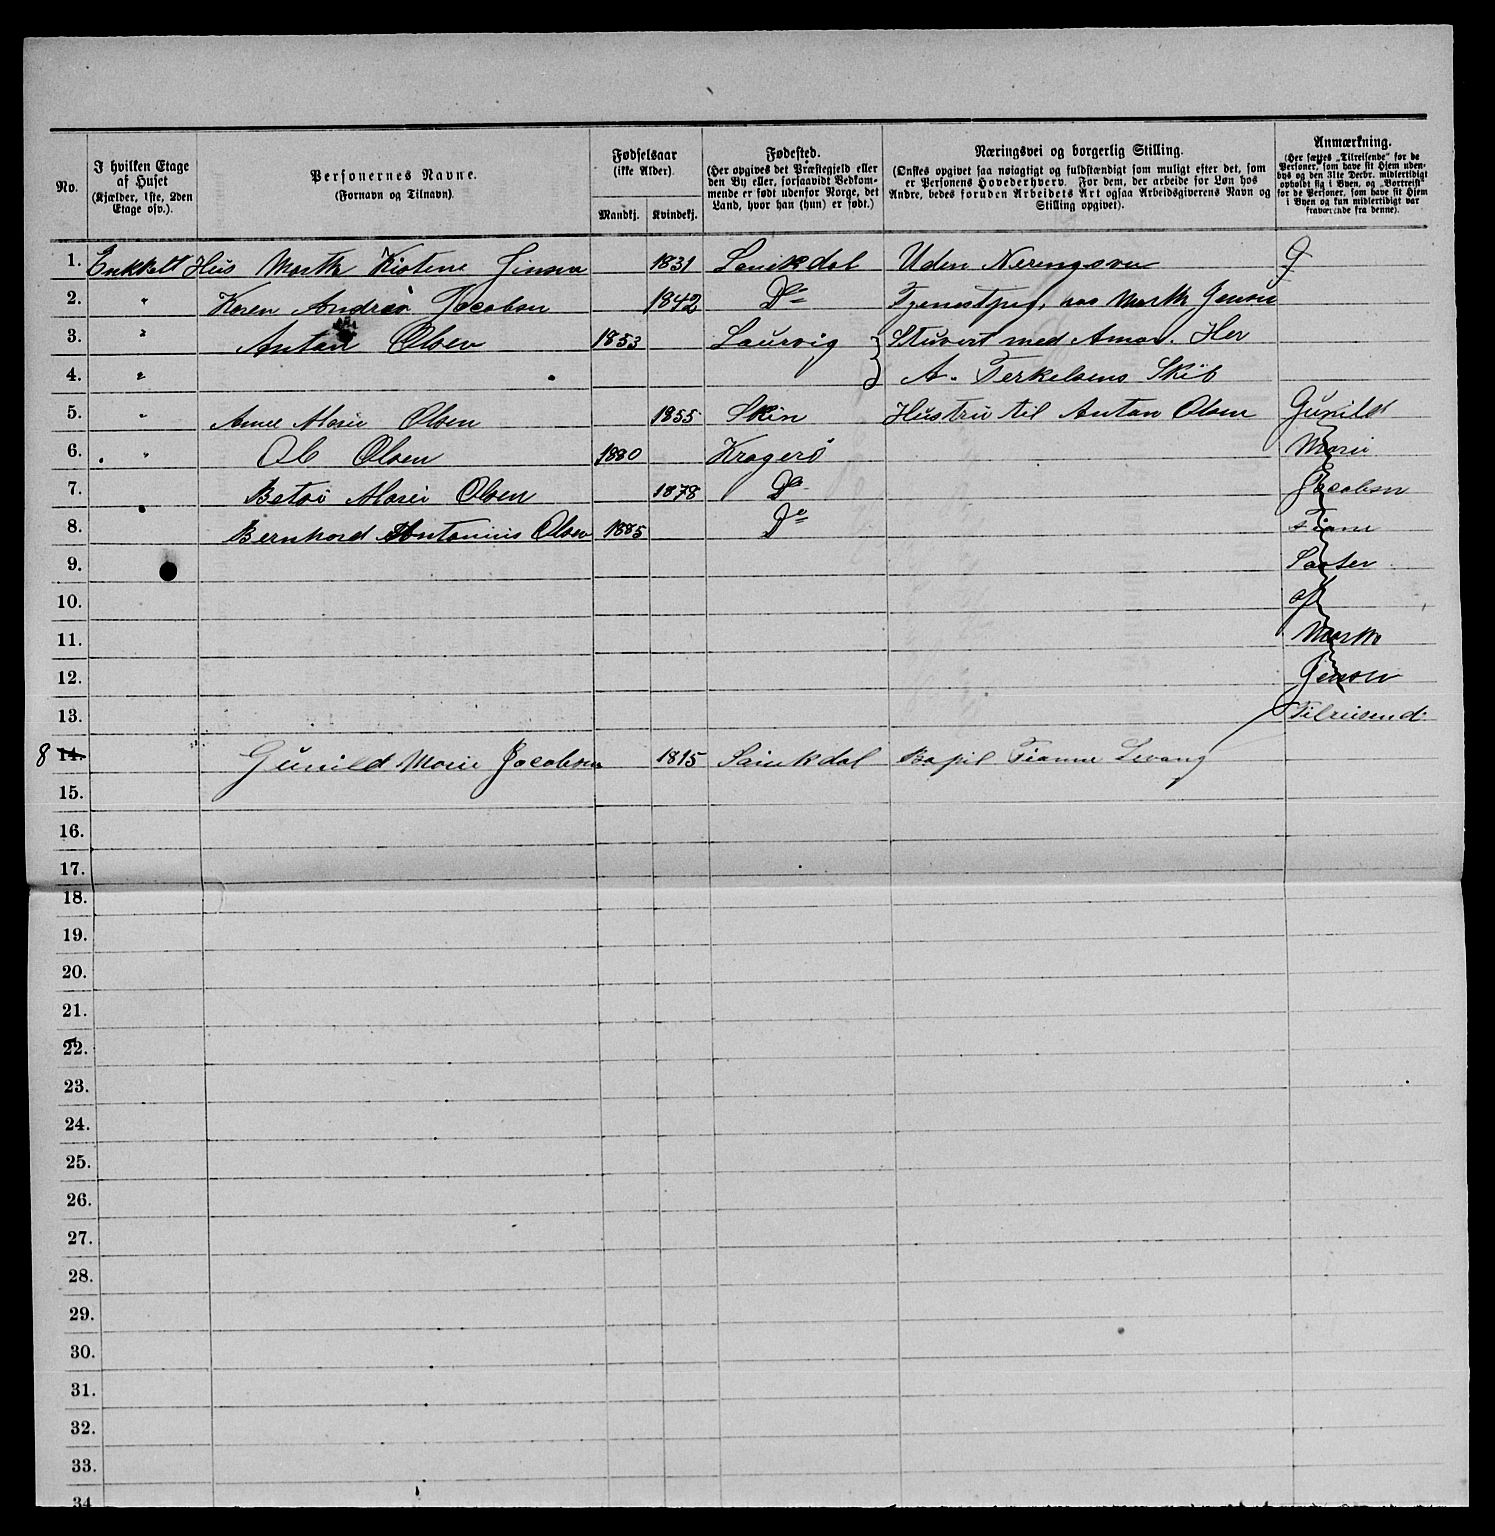 No.
I hvilken Etage af Huset
(Kjælder, 1ste, 2den Etage osv.).
Personernes Navne.
(Fornavn og Tilnavn).
Fødselsaar
(ikke Alder).
Mandkj. Kvindekj.
Fødested.
(Her opgives det Præstegjeld eller
den By eller, forsaavidt Vedkom-
mende er født udenfor Norge, det
Land, hvor han (hun) er født.)
Næringsvei og borgerlig Stilling.
(Ønskes opgivet saa nøiagtigt og fuldstændigt som muligt efter det, som
er Personens Hovederhverv. For dem, der arbeide for Løn hos
Andre, bedes foruden Arbeidets Art ogsaa Arbeidsgiverens Navn og
Stilling opgivet).
Anmærkning.
(Her sættes „Tilreisende" for de
Personer, som have sit Hjem uden-
bys og den 31te Decbr. midlertidigt
opholdt sig i Byen, og „Bortreist"
for de Personer, som have sit Hjem
i Byen og kun midlertidigt var
fraværende fra denne).
1. Enkkelt Hus 1831 Uden Neringsvei
2. " Karen Jacobsen 1842 Do hos Marth Jensen
3. " Anton Olsen 1853 Laurvig Stuvert med Her
4. " A. Terkelsens Skib
5. " Olsen 1855 Skin Hustru til Anton Olsen Gunild
6. " Ole Olsen 1880 Kragerø Marie
7. " Marie Olsen 1878 Do Jacobsen
8. " Bernhard Antonius Olsen 1885 Do
9. Søster
10. af
11. Marthe
12. Jensen
13. Tilreisend
8 14. Gunild Marie Jacobsen
15.
16.
17.
18.
19.
20.
21.
22.
23.
24.
25.
26.
27.
28.
29.
30.
31.
32.
33.
34